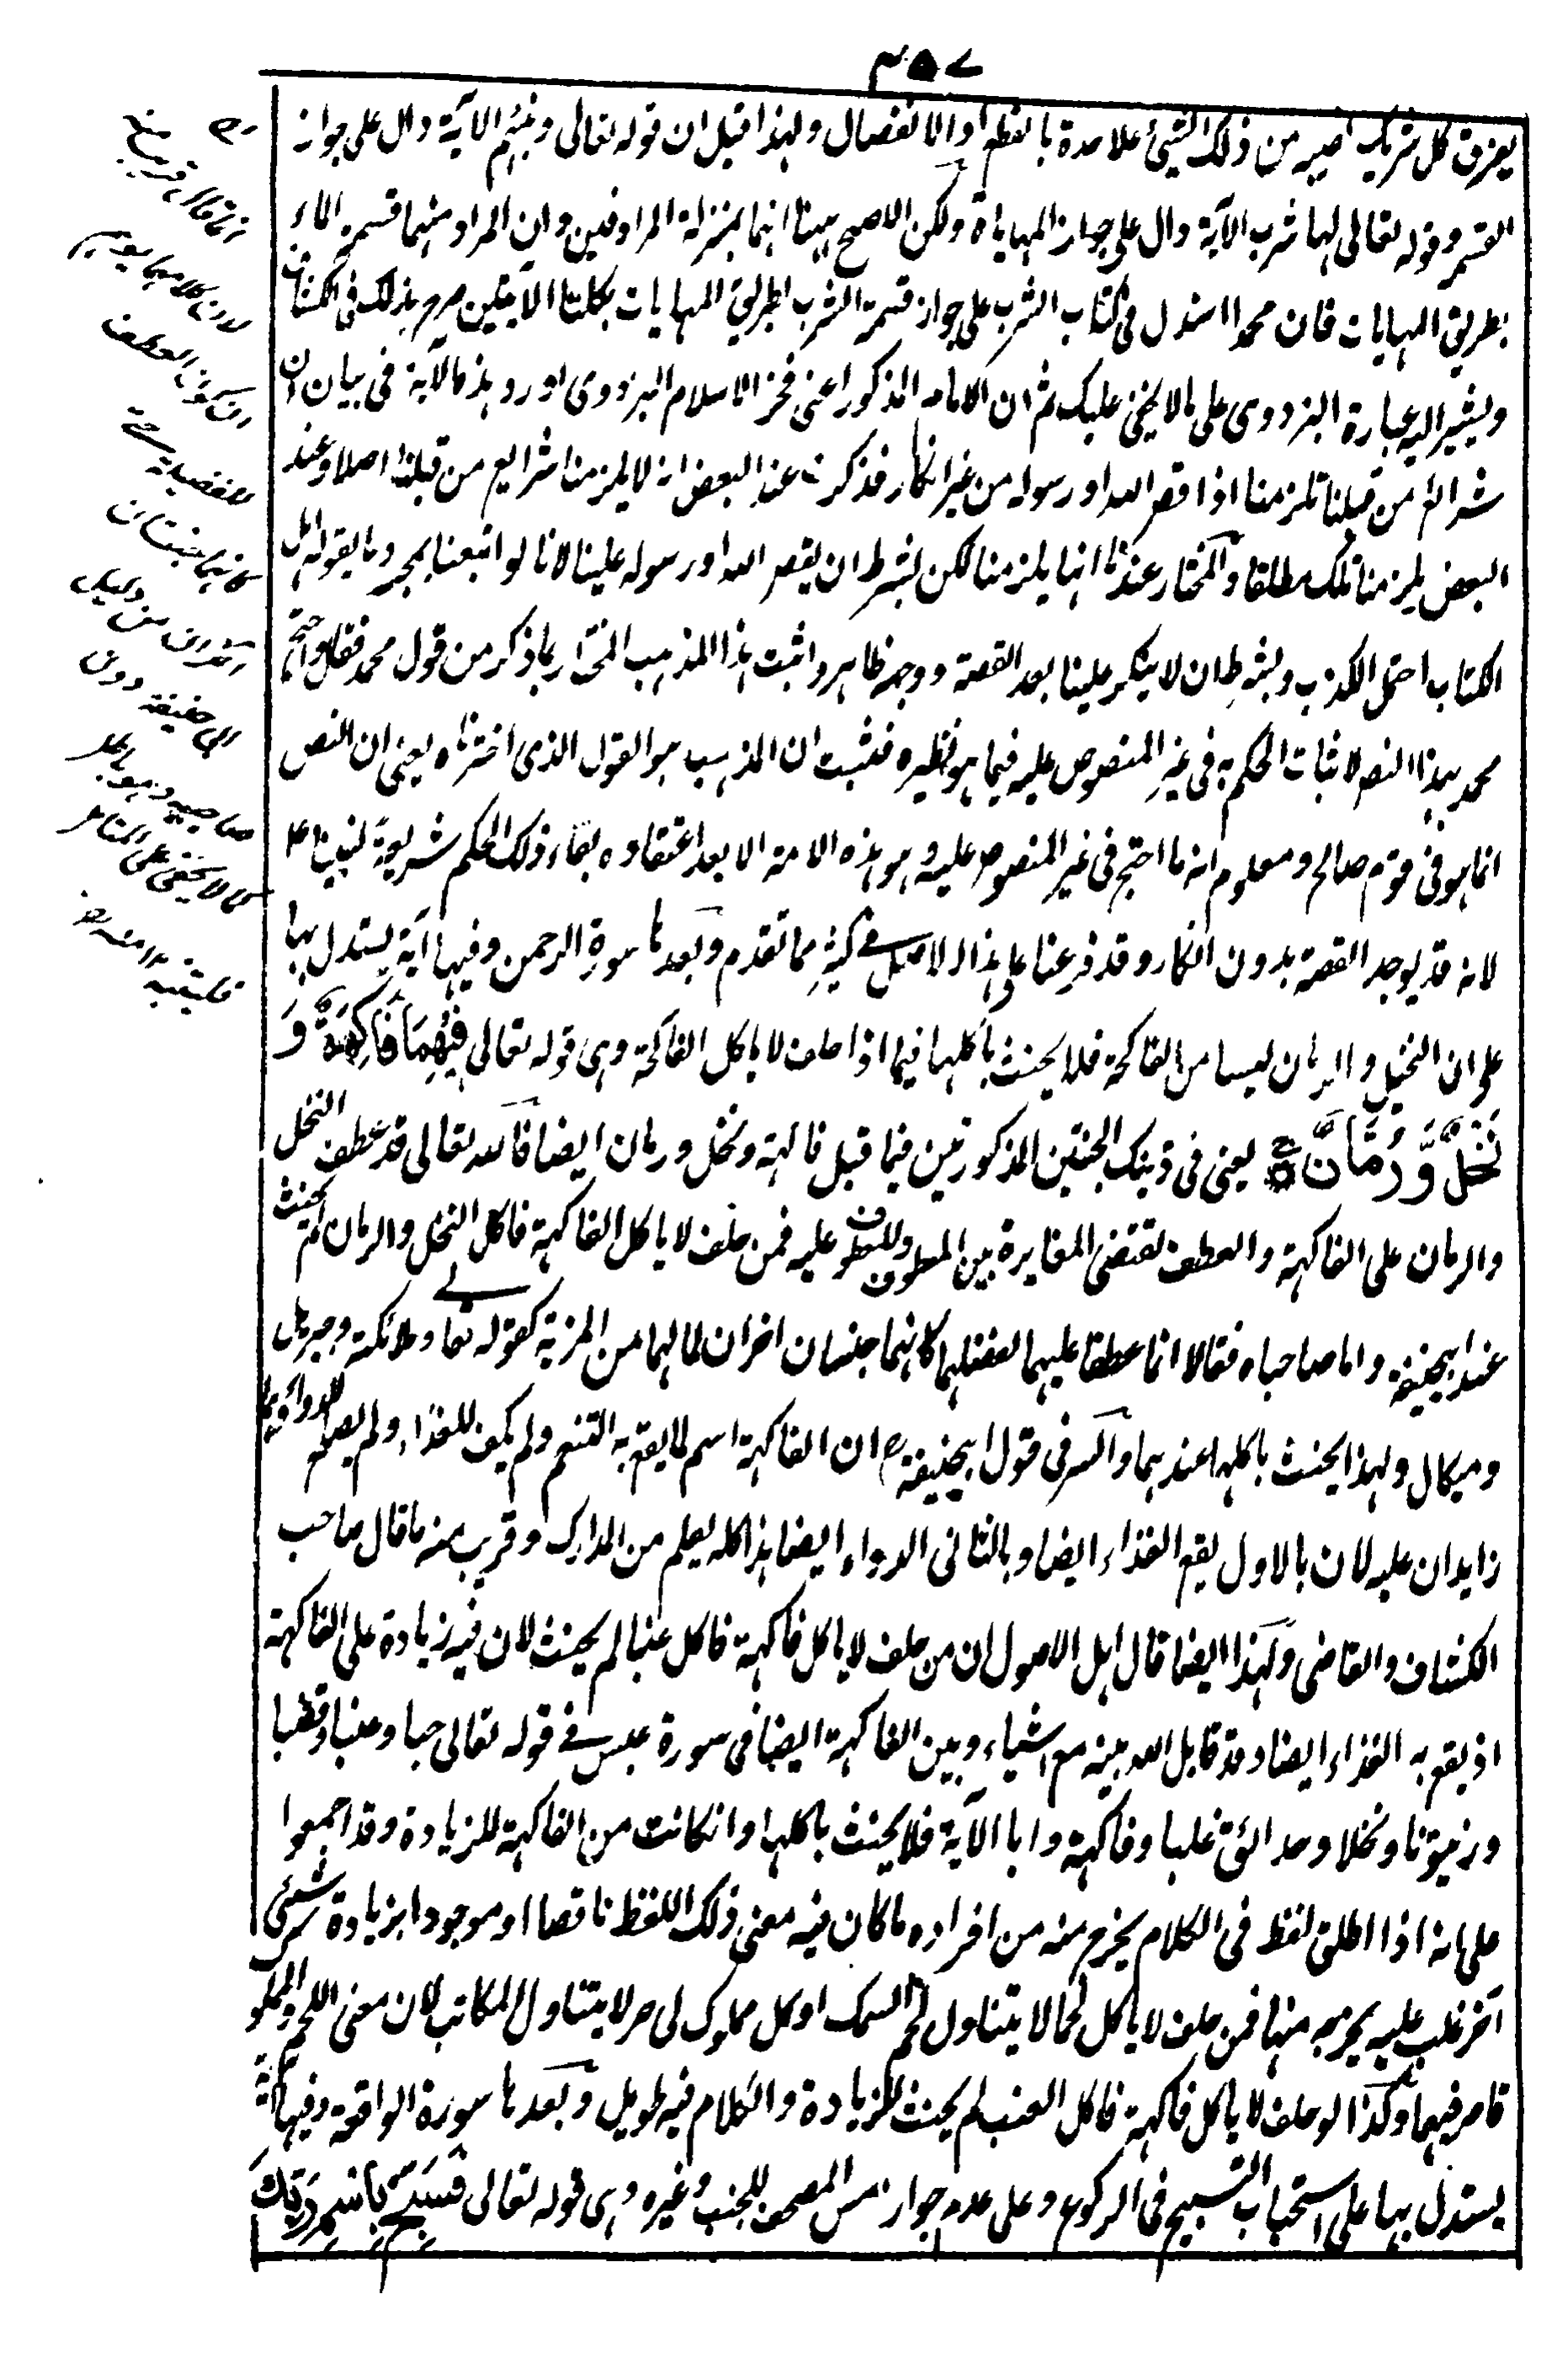 ٣٥٧
يعزق كل شريك نصيبه من ذلك الشئ علاحدة بالقطع او الانفصال ولهذا قيل ان قوله تعالى ونبئهم الاية دال على جواز
القسمة وقوله تعالى لها شرب الآية دال على جواز المهاياة ولكن الاصح ههنا انهما بمنزلة المرادفين وان المراد منهما قسمة الماء
بطريق المهايات فان محمدا استدل فى كتاب الشرب على جواز قسمة الشرب بطريق المهايات بكلتا الآيتين صرح بذلك فى الكشاف
ويشير اليه عبارة البزدوى على ما لا يخفى عليك ثم ان الامام المذكور اعنى فخر الاسلام البزدوى اورد هذه الآية فى بيان ان
شرائع من قبلنا تلزمنا اذا قص الله او رسوله من غير انكار فذكر ان عند البعض انه لا يلزمنا شرايع من قبلنا اصلا وعند
البعض يلزمنا تلك مطلقا والمختار عندنا انها يلزمنا لكن بشرط ان يقص الله او رسوله علينا لانا لو اتبعنا بمجرد ما يقوله اهل
الكتاب احتمل الكذب وبشرط ان لا ينكر علينا بعد القصة ووجهه ظاهر واثبت هذا المذهب المختار بما ذكر من قول محمد فقال واحتج
محمد بهذا النص لاثبات الحكم به فى غير المنصوص عليه فيما هو نظيره فثبت ان المذهب هو القول الذى اخترناه يعنى ان النص
انما هو فى قوم صالح ومعلوم انه ما احتج فى غير المنصوص عليه وهو هذه الامة الا بعد اعتقاده بقاء ذلك الحكم شريعة لنبينا ع
لانه قد يوجد القصة بدون انكار وقد فرعنا على هذا الاصل فى كثير مما تقدم وبعدها سورة الرحمن وفيها آية يستدل بها
على ان النخيل والرمان ليسا من الفاكهة فلا يحنث باكلها فيما اذا حلف لا ياكل الفاكهة وهى قوله تعالى فِيْهِمَا فَاكِهَةٌ وَّ
نَخْلٌ وَّ رُمَّانٌ يعنى فى ذينك الجنتين المذكورتين فيما قبل فاكهة ونخل ورمان ايضا فالله تعالى قد عطف النخل
والرمان على الفاكهة والعطف يقتضى المغايرة بين المعطوف والمعطوف عليه فمن حلف لا ياكل الفاكهة فاكل النخل والرمان لم يحنث
عند ابيحنيفة واما صاحباه فقالا انما عطفا عليهما لفضلهما كانهما جنسان اخران لما لهما من المزية كقوله تعالى وملائكته وجبريل
وميكال ولهذا يحنث باكلها عندهما والسر فى قول ابيحنيفة رح ان الفاكهة اسم لما يقع به التنعم ولم يكن للغذاء ولم يصلح للدواء وهما
زايدان عليه لان بالاول يقع الغذاء ايضا وبالثانى الدواء ايضا هذا كله يعلم من المدارك وقريب منه ما قال صاحب
الكشاف والقاضى ولهذا ايضا قال اهل الاصول ان من حلف لا ياكل فاكهة فاكل عنبا لم يحنث لان فيه زيادة على الفاكهة
اذ يقع به الغذاء ايضا وقد قابل الله بينه مع اشياء وبين الفاكهة ايضا فى سورة عبس فى قوله تعالى حبا وعنبا وقضبا
وزيتونا ونخلا وحدائق غلبا وفاكهة وابا الآية فلا يحنث باكلها وانكانت من الفاكهة للزيادة وقد اجمعوا
على انه اذا اطلق لفظ فى الكلام يخرج منه من افراده ما كان فيه معنى ذلك اللفظ ناقصا او موجودا بزيادة شئ
آخر غلب عليه يخرجه منها فمن حلف لا ياكل لحما لا يتناول لحم السمك او كل مملوك لى حر لا يتناول المكاتب لان معنى اللحم والمملوك
قاصر فيهما وكذا لو حلف لا ياكل فاكهة فاكل العنب لم يحنث للزيادة والكلام فيه طويل وبعدها سورة الواقعة وفيها آية
يستدل بها على استحباب التسبيح فى الركوع وعلى عدم جواز مس المصحف للجنب وغيره وهى قوله تعالى فَسَبِّحْ بِاسْمِ رَبِّكَ
انما قال قريب منه
لان كلامهما يوهم
ان كون العطف
للفضيلة حتى
كانهما جنسان
آخران من دليل
ابى حنيفة دون
صاحبيه وهو باطل
كما لا يخفى على الناظر
فليتنبه ١٢ منه